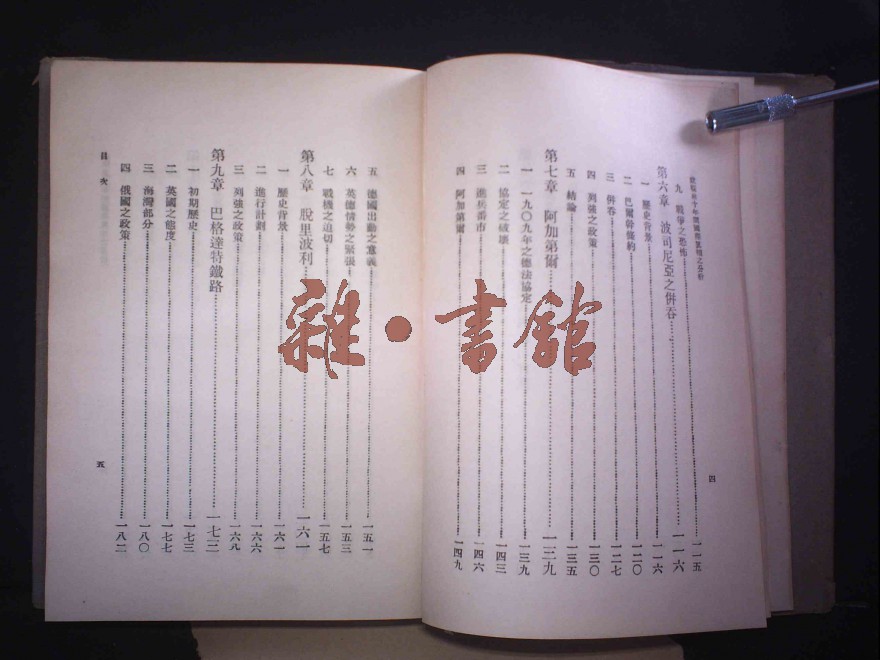 九 戰爭之恐怖 一一五
第六章 波司尼亞之併吞 一一六
一 歷史背景 一一六
二 巴爾幹條約 一二〇
三 併吞 一二七
四 列強之政策 一三〇
五 結論 一三五
第七章 阿加第爾 一三九
一 一九〇九年之德法協定 一三九
二 協定之破壞 一四三
三 進兵番市 一四六
四 阿加第爾 一四九
四
五 德國出動之意義 一五一
六 英德情勢之緊張 一五三
七 戰機之迫切 一五七
第八章 脫里波利 一六一
一 歷史背景 一六一
二 進行計劃 一六六
三 列強之政策 一六八
第九章 巴格達特鐵路 一七三
一 初期歷史 一七三
二 英國之態度 一七七
三 海灣部分 一八〇
四 俄國之政策 一八二
目次
五
雜·書館